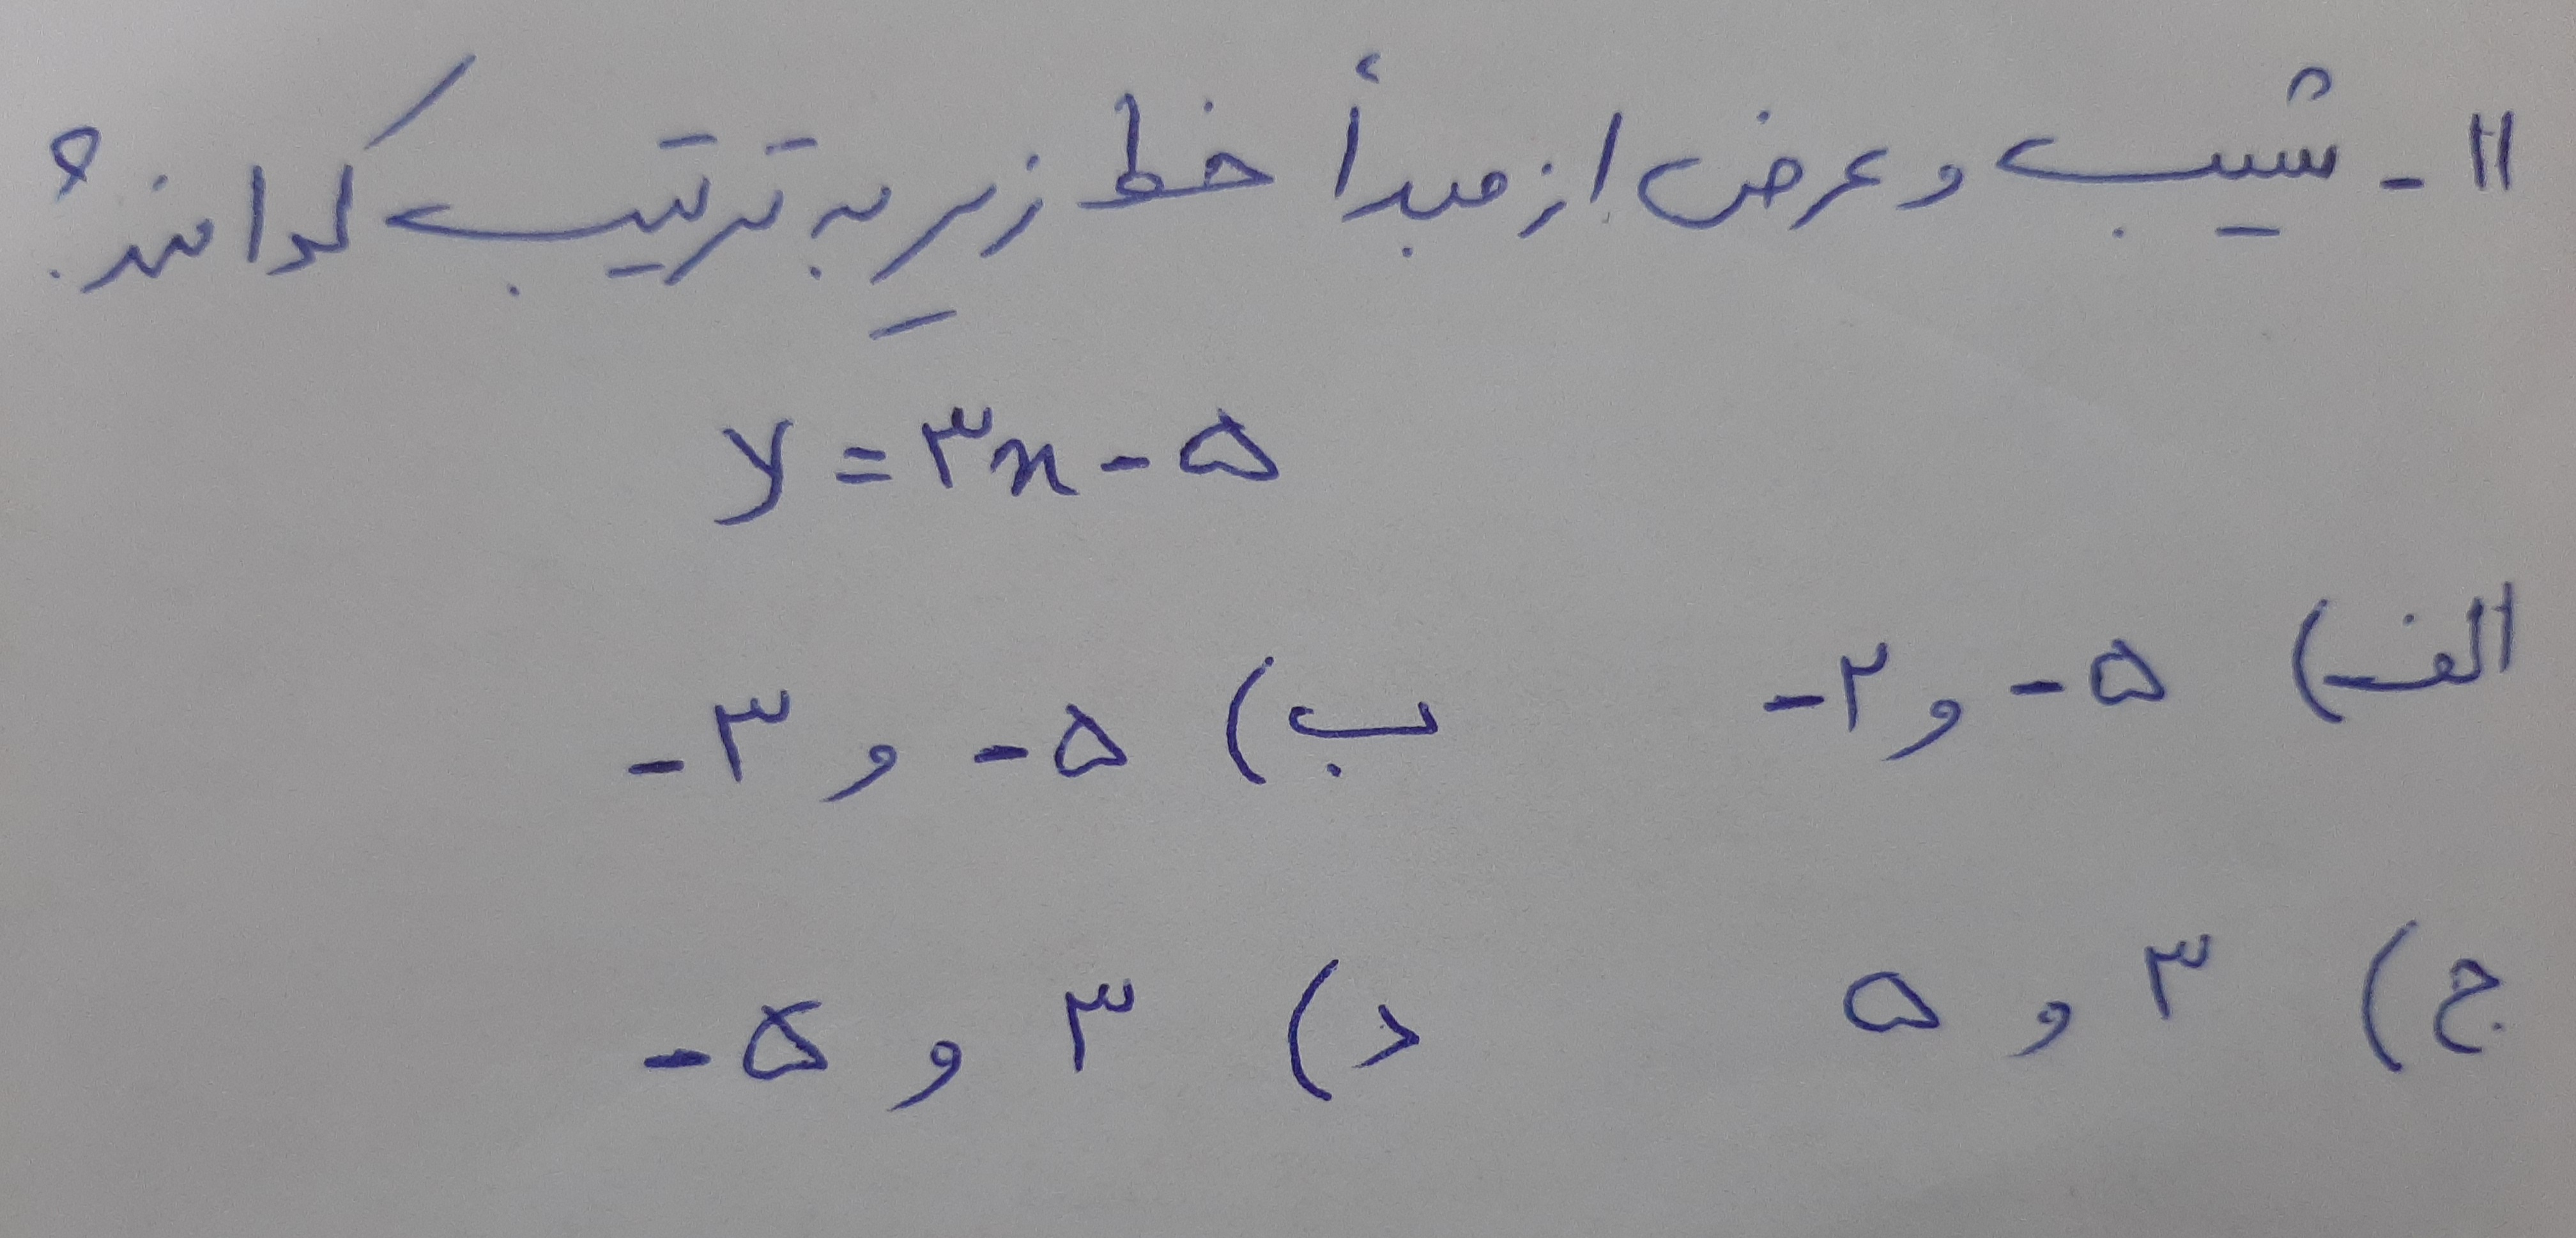 ۱۱- شیب و عرض از مبدأ خط زیر به ترتیب کدامند؟
y = ۳x - ۵
الف) -۵ و -۲ ب) -۵ و -۳
ج) ۳ و ۵ د) ۳ و -۵